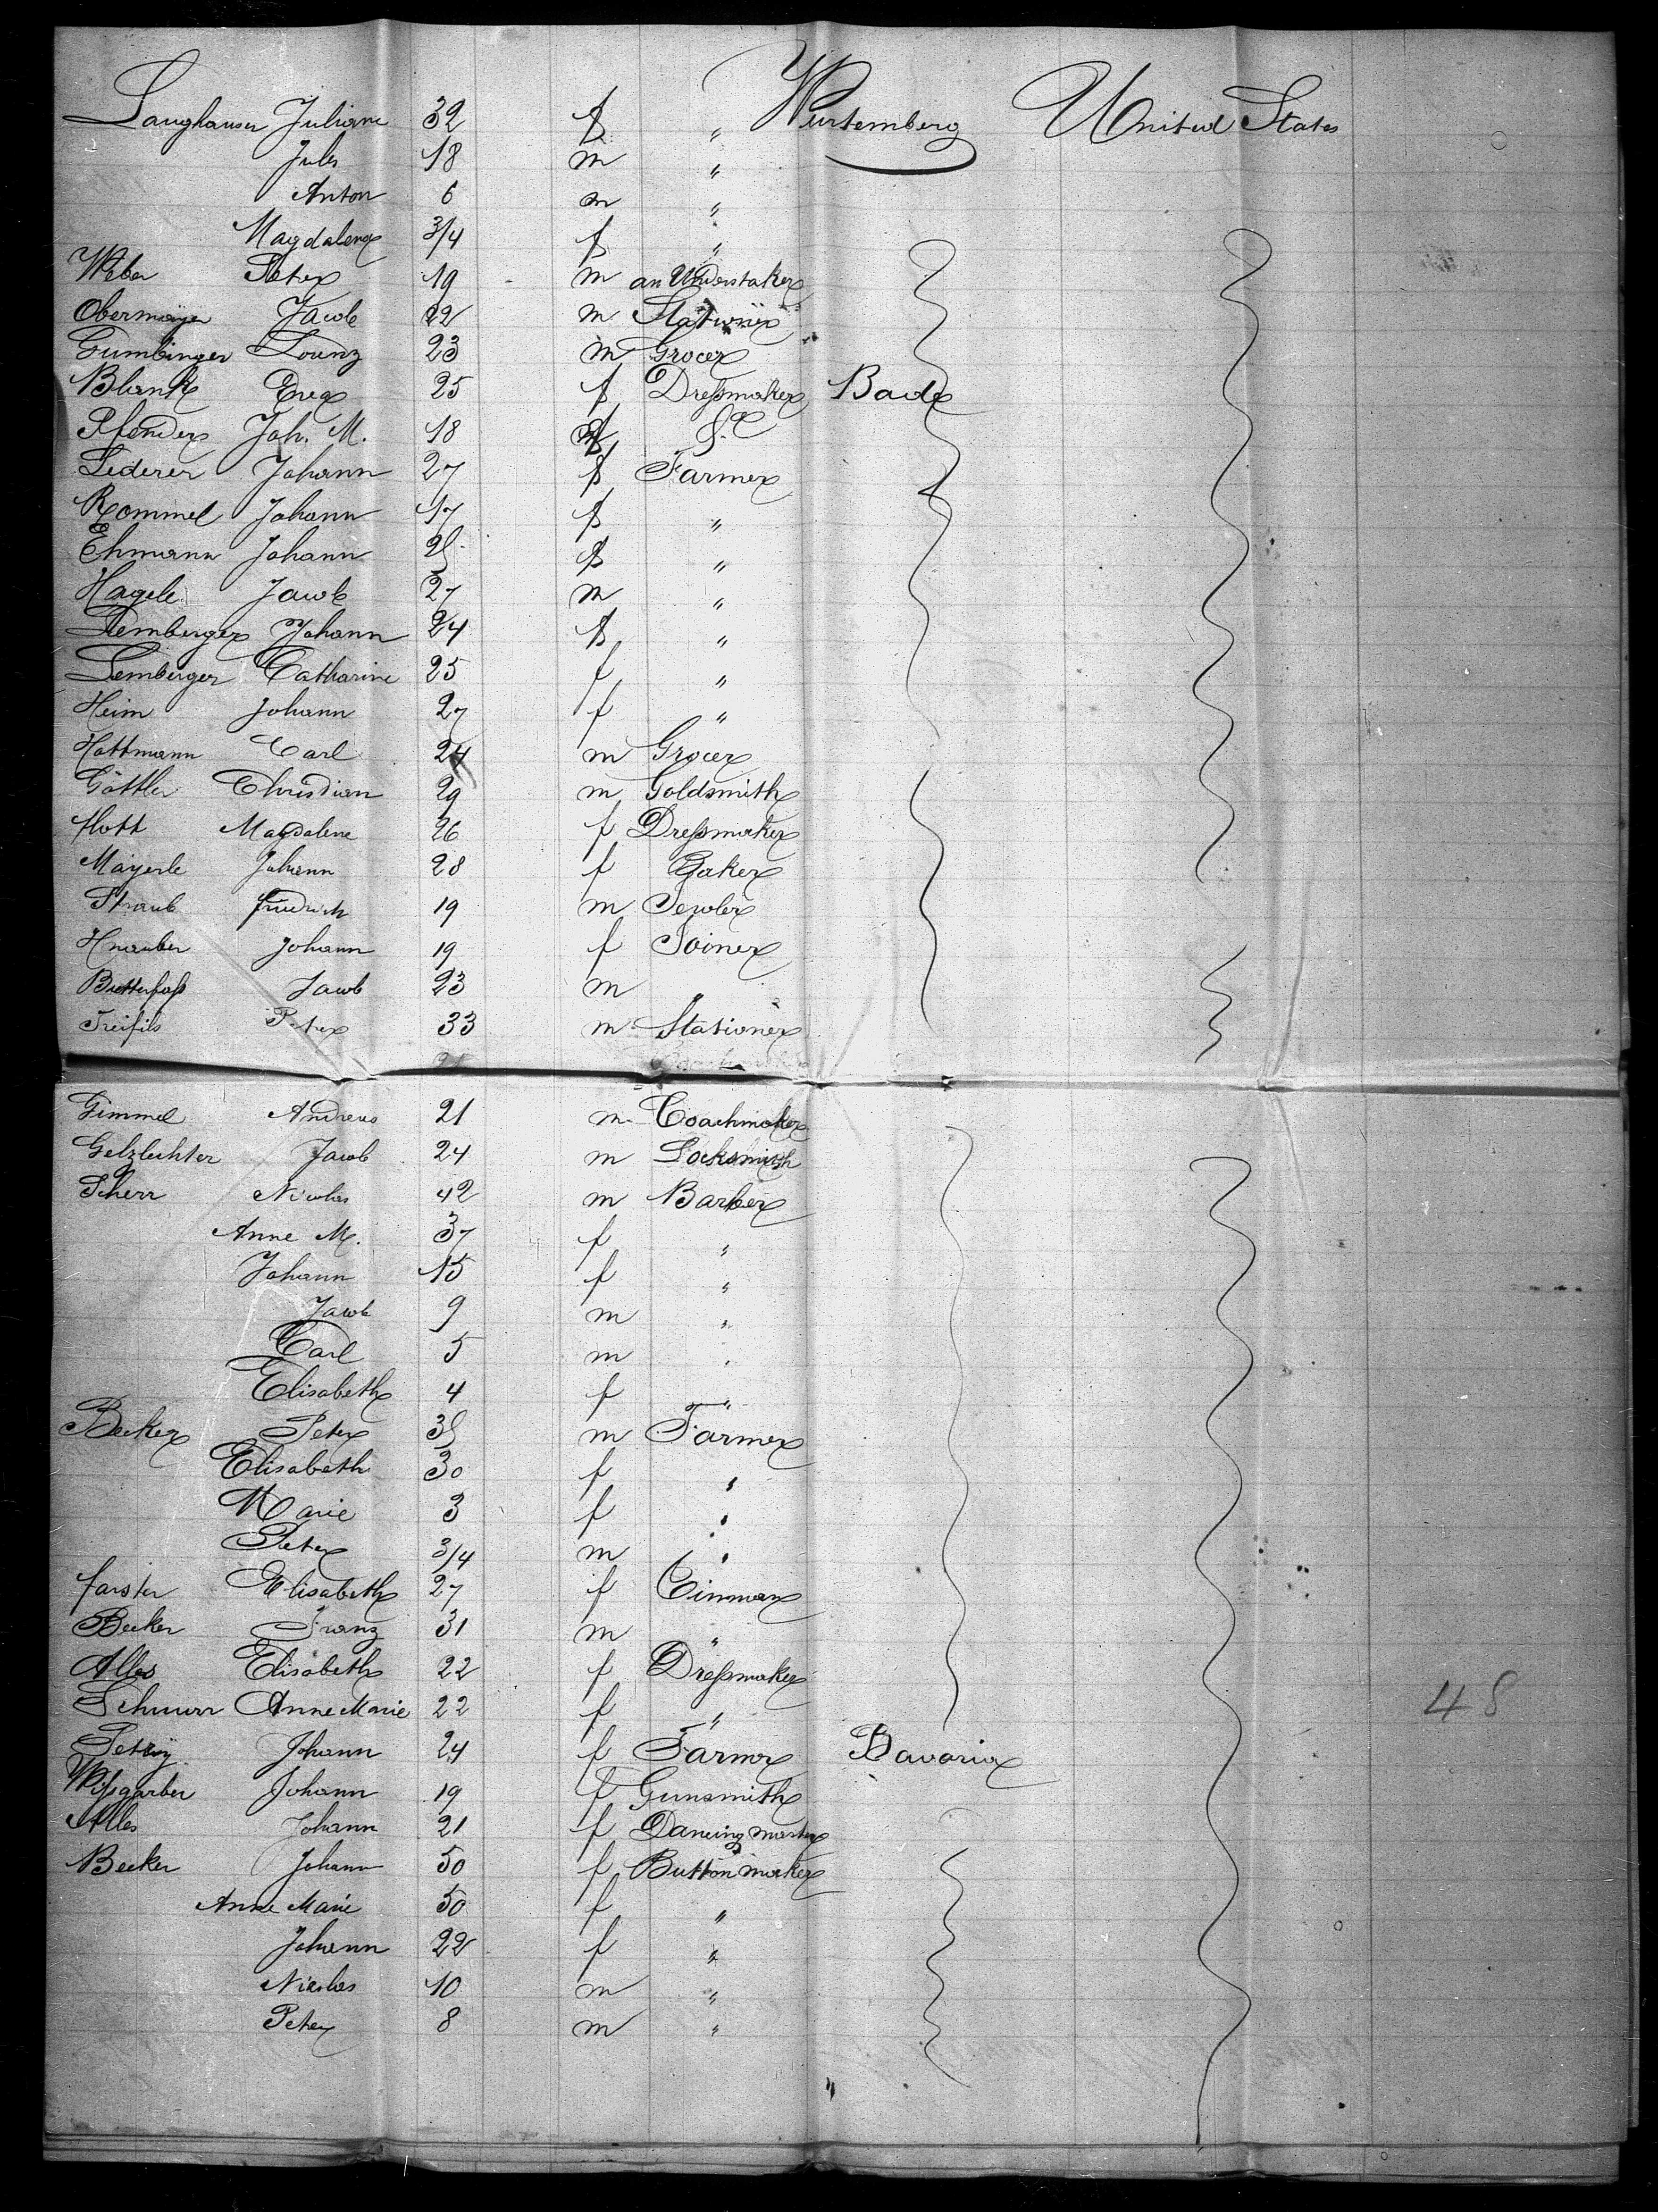 Langhauser Juliane 32 f " Wurtemberg United States
Jules 18 m "
Anton 6 m "
Magdalena 3/4 f "
Weber Peter 19 m an Understaker
Obermayer Jacob 22 m Stationer
Gumbinger Lorenz 23 m Grocer
Blank 25 f Dressmaker Bade
Pfender Joh. M. 18
Lederer Johann 27 f Farmer
Rommel Johann 17 f "
Ehmann Johann 25 f "
Hagele Jacob 27 m "
Lemberger Johann 24 f "
Lemberger Catharine 25 f "
Heim Johann 27 f "
Hottmann Carl 24 m Grocer
Göttler Christian 29 m Goldsmith
Hott Magdalene 26 f Dressmaker
Mayerle Johann 28 f Baker
Straub Friedrich 19 m Jewler
Hnauber Johann 19 f Joiner
Butterfass Jacob 23 m "
Treifils Peter 33 m Stationer
Gimmel Andreas 21 m Coachmaker
Gelzlechter Jacob 24 m Locksmith
Scherr Nicolas 42 m Barber
Anne M. 37 f "
Johann 15 f "
Jacob 9 m "
Carl 5 m "
Elisabeth 4 f "
Becker Peter 35 m Farmer
Elisabeth 30 f "
Marie 3 f "
Peter 3/4 m "
Farster Elisabeth 27 f Tinman
Becker Franz 31 m "
Alles Elisabeth 22 f Dressmaker
Schnurr Anne Marie 22 f " 48
Petry Johann 24 f Farmer Bavaria
Wissgarber Johann 19 f Gunsmith
Alles Johann 21 f Dancing master
Becker Johann 50 f Button maker
Anne Marie 50 f "
Johann 22 f "
Nicolas 10 m "
Peter 8 m "